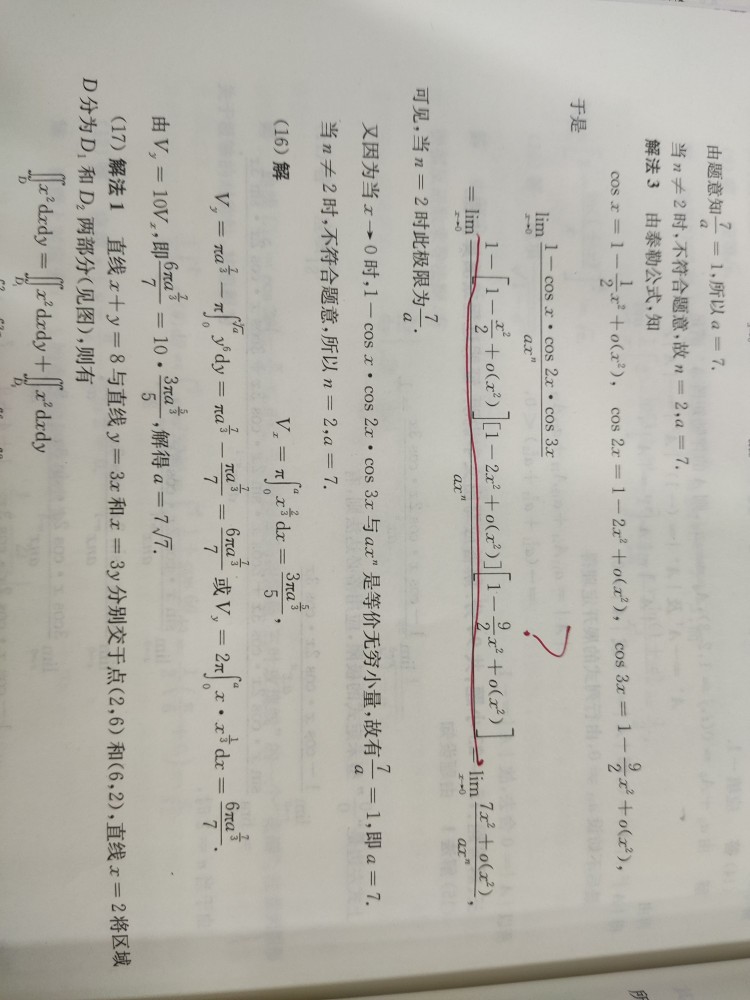 由题意知$\frac{7}{a}=1$,所以 $a=7$.
当 $n\neq 2$ 时,不符合题意,故 $n=2,a=7$.
解法 3 由泰勒公式,知
$\cos x=1-\frac{1}{2}x^2+o(x^2),\ \cos 2x=1-2x^2+o(x^2),\ \cos 3x=1-\frac{9}{2}x^2+o(x^2),$
于是
$\lim\limits_{x\to 0}\frac{1-\cos x\cdot\cos 2x\cdot\cos 3x}{ax^n}$
?
$=\lim\limits_{x\to 0}\frac{1-\left[1-\frac{x^2}{2}+o(x^2)\right][1-2x^2+o(x^2)]\left[1-\frac{9}{2}x^2+o(x^2)\right]}{ax^n}=\lim\limits_{x\to 0}\frac{7x^2+o(x^2)}{ax^n},$
可见,当 $n=2$ 时此极限为$\frac{7}{a}$.
又因为当 $x\to 0$ 时,$1-\cos x\cdot\cos 2x\cdot\cos 3x$ 与 $ax^n$ 是等价无穷小量,故有$\frac{7}{a}=1$,即 $a=7$.
当 $n\neq 2$ 时,不符合题意,所以 $n=2,a=7$.
(16) 解
$V_x=\pi\int_0^a x^{\frac{2}{3}}dx=\frac{3\pi a^{\frac{5}{3}}}{5},$
$V_y=\pi a^{\frac{7}{3}}-\pi\int_0^{\sqrt[3]{a}}y^6dy=\pi a^{\frac{7}{3}}-\frac{\pi a^{\frac{7}{3}}}{7}=\frac{6\pi a^{\frac{7}{3}}}{7}$ 或 $V_y=2\pi\int_0^a x\cdot x^{\frac{1}{3}}dx=\frac{6\pi a^{\frac{7}{3}}}{7}.$
由 $V_y=10V_x$,即$\frac{6\pi a^{\frac{7}{3}}}{7}=10\cdot\frac{3\pi a^{\frac{5}{3}}}{5}$,解得 $a=7\sqrt{7}$.
(17) 解法 1 直线 $x+y=8$ 与直线 $y=3x$ 和 $x=3y$ 分别交于点(2,6) 和(6,2),直线 $x=2$ 将区域
$D$ 分为 $D_1$ 和 $D_2$ 两部分(见图),则有
$\iint\limits_D x^2dxdy=\iint\limits_{D_1}x^2dxdy+\iint\limits_{D_2}x^2dxdy$